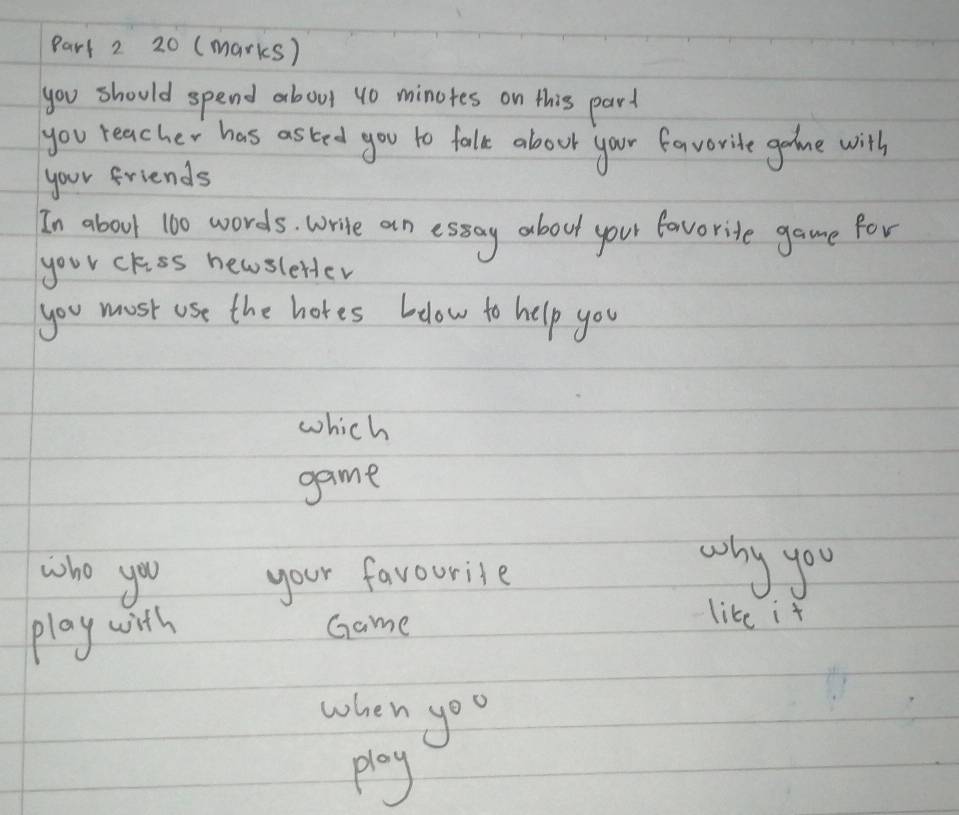 Part 2 20 (marks)
you should spend about 40 minotes on this part
you teacher has asked you to talk about your favorite game with
your friends
In about 100 words. Write an essay about your favorite game for
your class newsletter
you must use the notes below to help you
which
game
who you your favourite why you
play with Game like it
when you
play